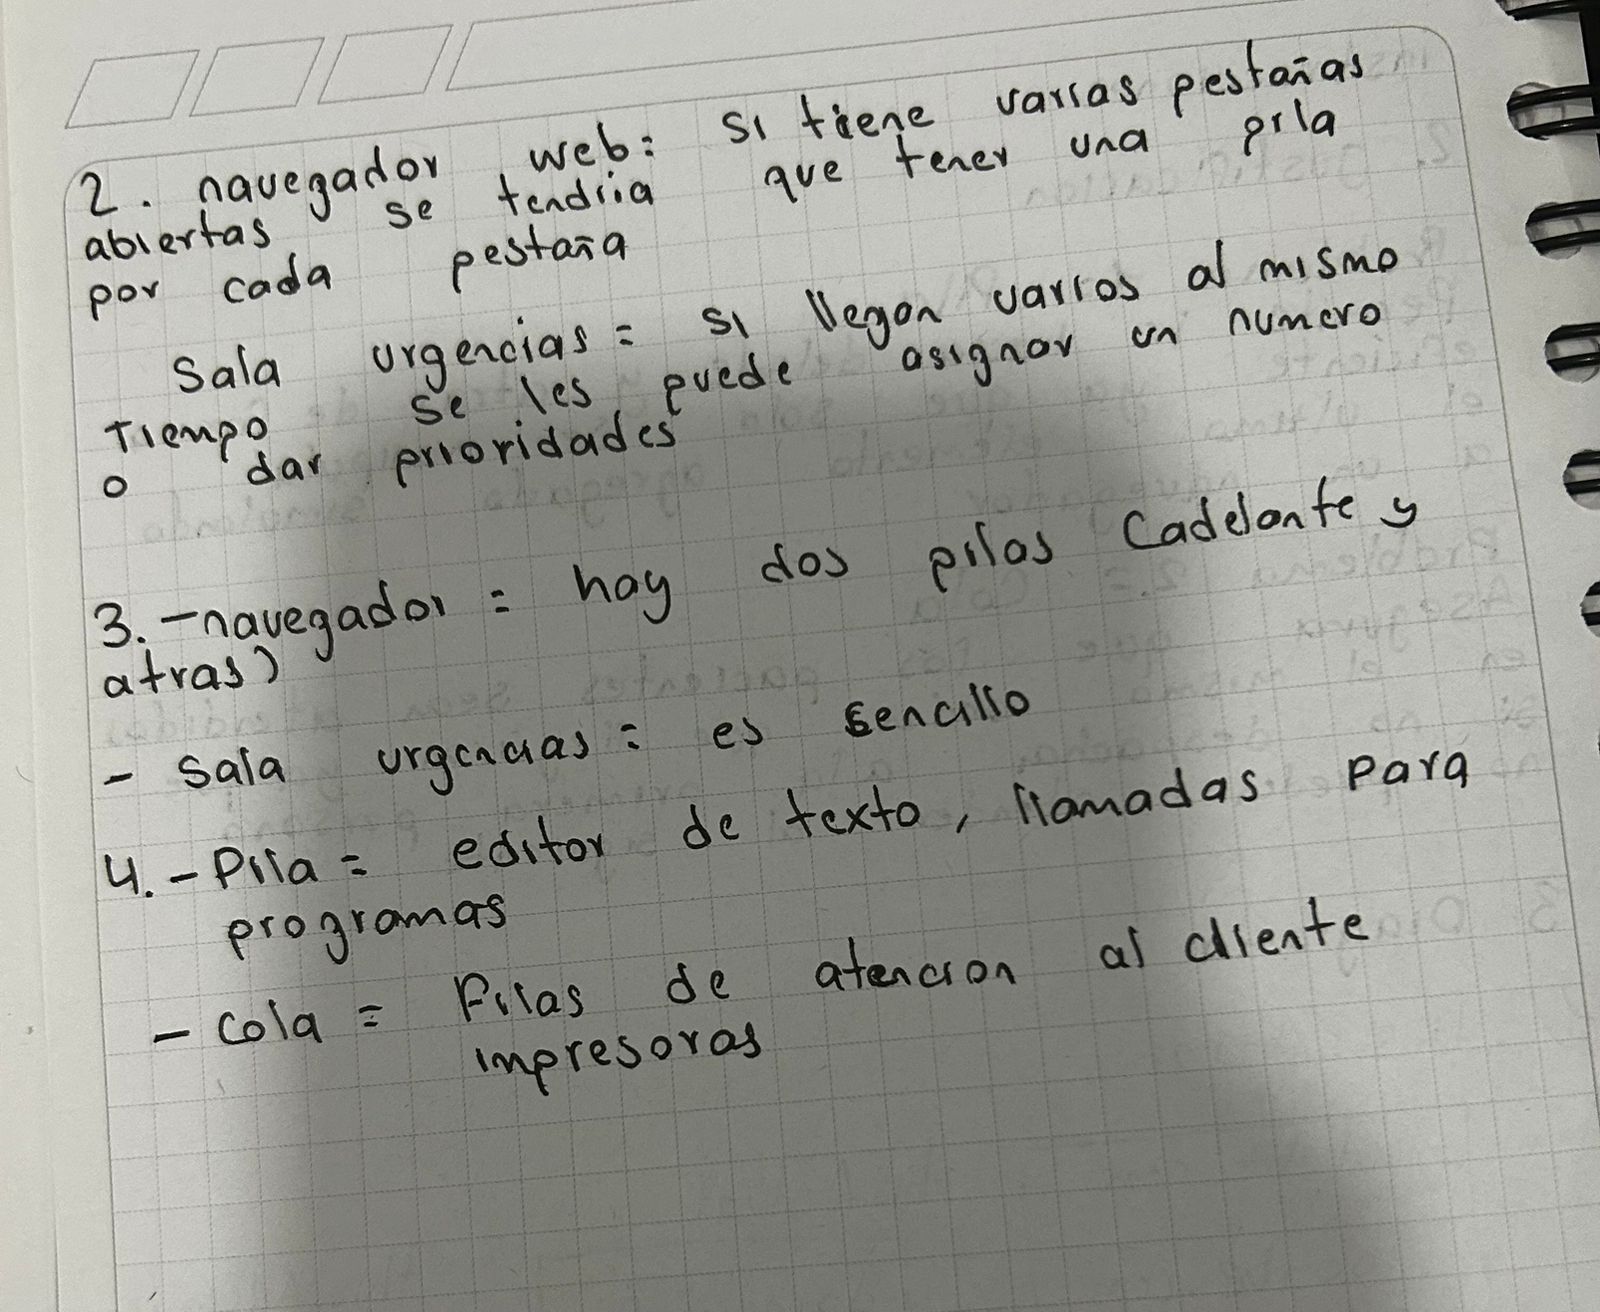 2. navegador web: si tiene varias pestañas
abiertas se tendria que tener una pila
por cada pestaña
Sala urgencias = si llegan varios al mismo
Tiempo se les puede asignar un numero
o dar prioridades
3. - navegador = hay dos pilas (adelante y
atras)
- Sala urgencias = es sencillo
4. - Pila = editor de texto, llamadas para
programas
- Cola = Filas de atencion al cliente
impresoras